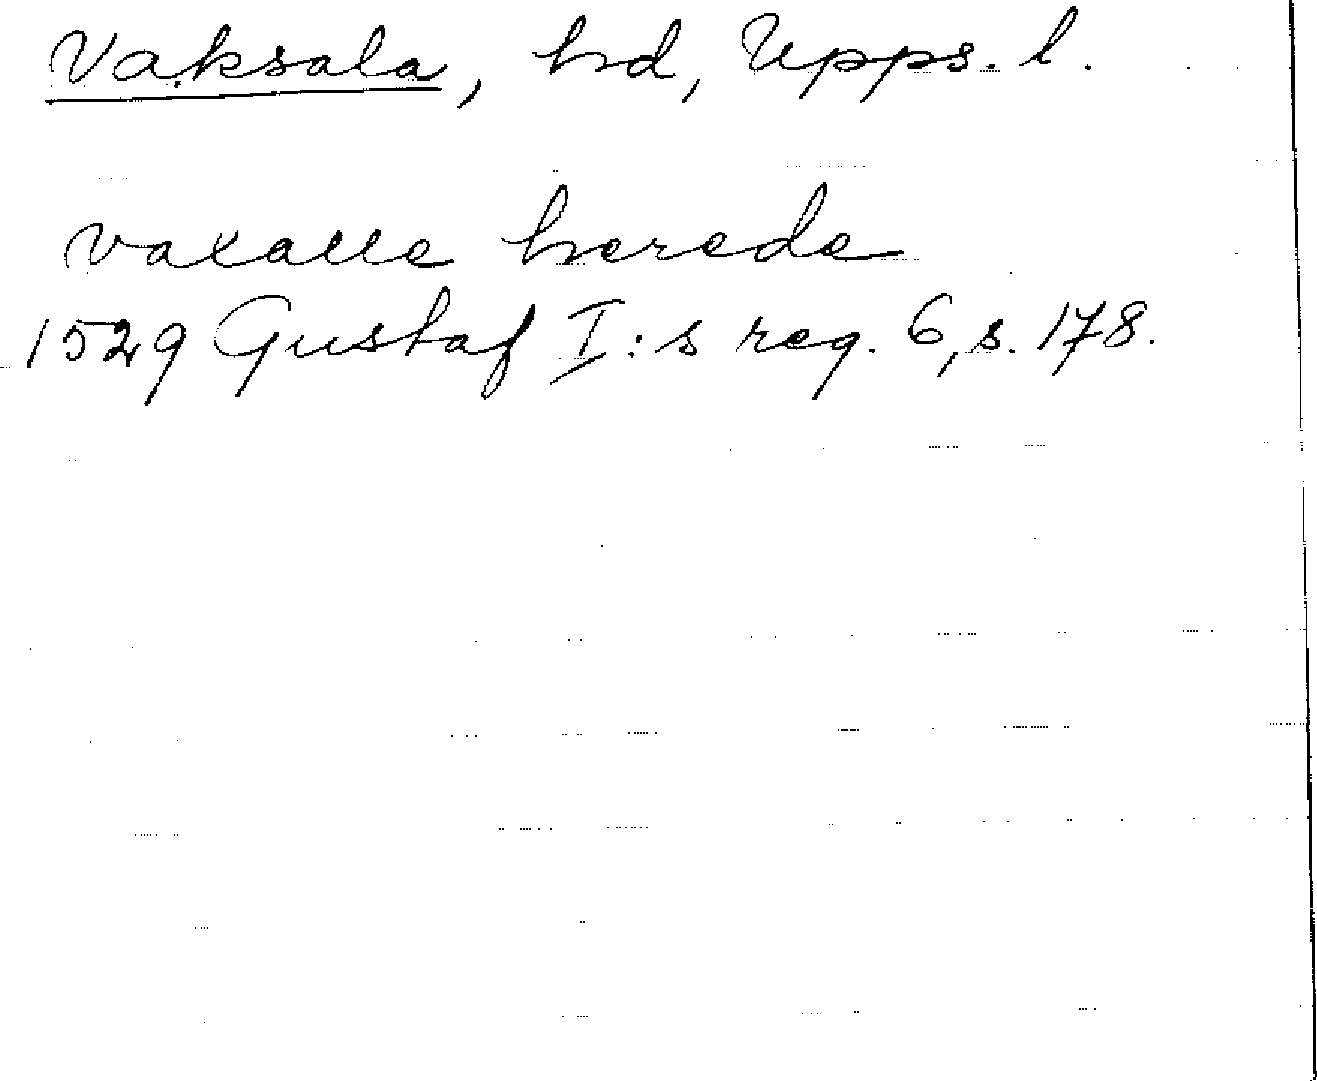 Vaksala, hd, Upps. l.
vaxalle herede
1529 Gustaf I:s reg. 6, s. 178.